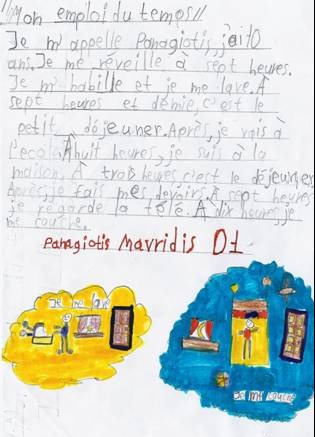 Mon emploi du temps!!
Je m'appelle Panagiotis, j'ai 10
ans. Je me réveille à sept heures.
Je m' habille et je me lave. À
sept heures et demie, c'est le
petit déjeuner. Après, je vais à
l'école. À huit heures, je suis à la
maison. À trois heures c'est le déjeuner.
Après, je fais mes devoirs. À sept heures
je regarde la télé. À dix heures, je
me couche.
Panagiotis Mavridis D1
Je me lave
Je me couche